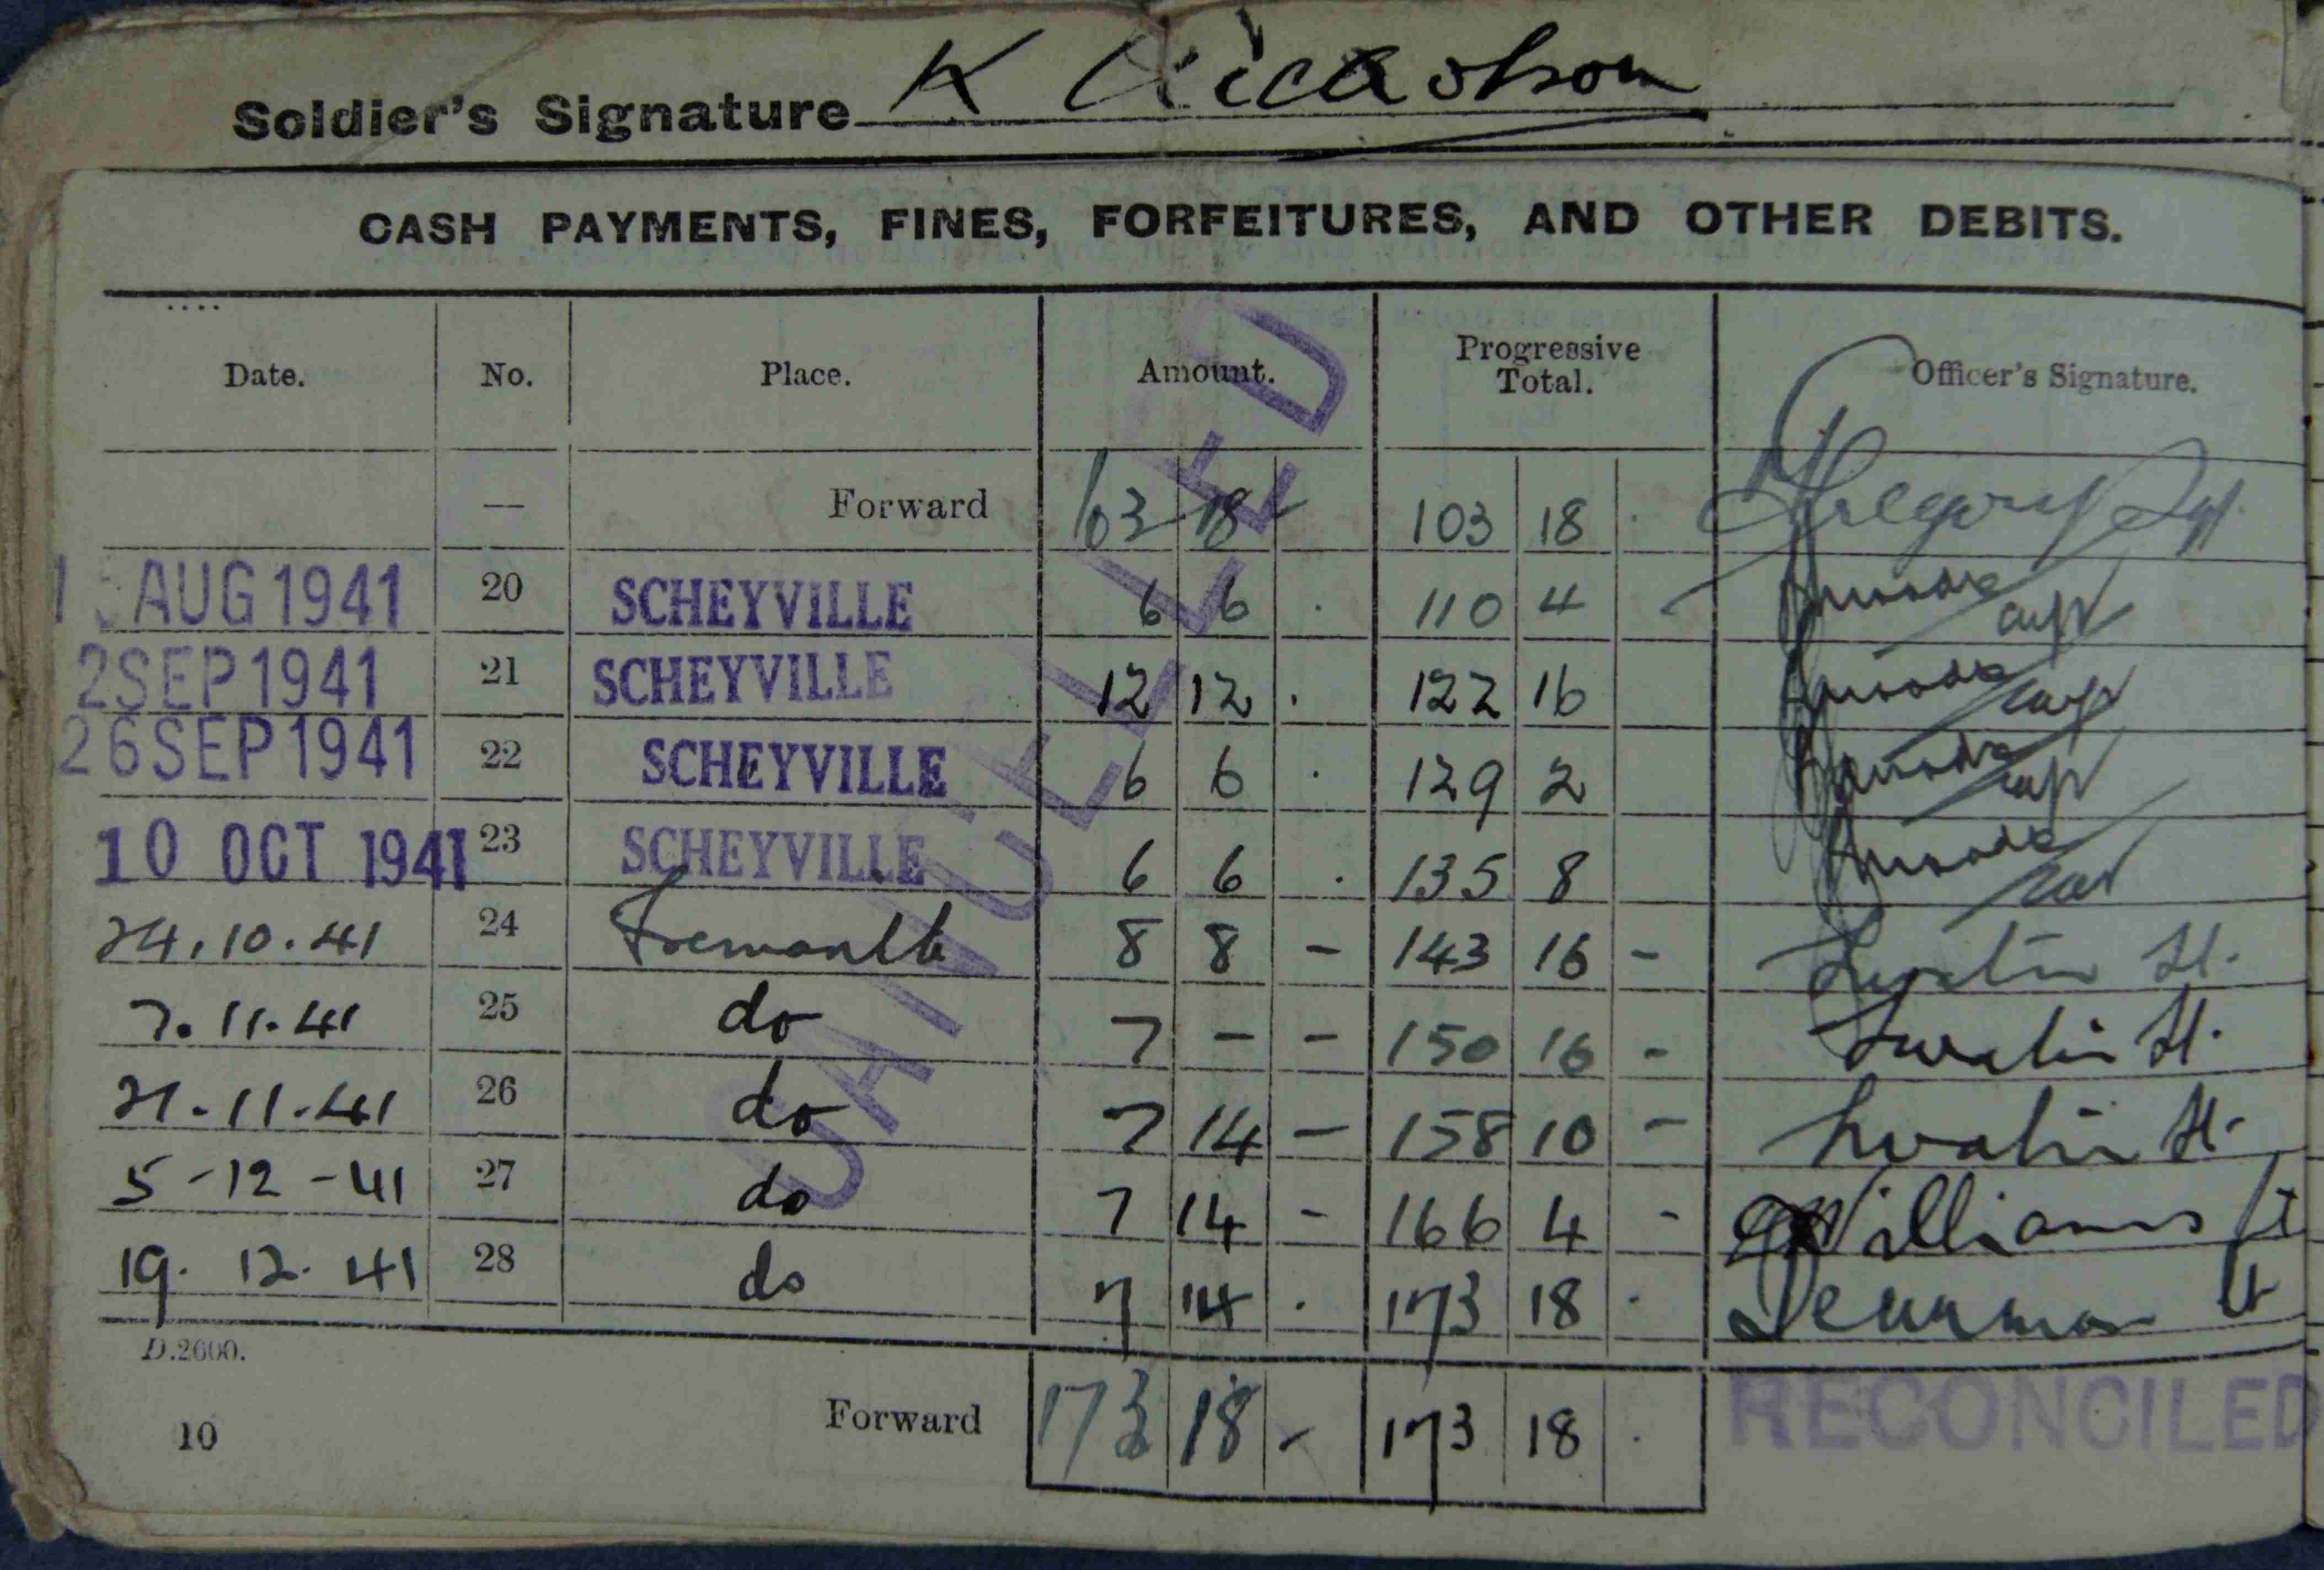 Soldier's Signature K Nickolson
CASH PAYMENTS, FINES, FORFEITURES, AND OTHER DEBITS.
Date. No. Place. Amount. Progressive Total. Officer's Signature.
— Forward 103 18 - 103 18 . Gregory
AUG 1941 20 SCHEYVILLE 6 6 . 110 4
2 SEP 1941 21 SCHEYVILLE 12 12 . 122 16
26 SEP 1941 22 SCHEYVILLE 6 6 . 129 2
10 OCT 1941 23 SCHEYVILLE 6 6 . 135 8
24.10.41 24 Fremantle 8 8 - 143 16 - Lt.
7.11.41 25 do 7 - - 150 16 - Lt.
21.11.41 26 do 7 14 - 158 10 - Lt-
5-12-41 27 do 7 14 - 166 4 - Williams Lt
19.12.41 28 do 7 14 . 173 18 . Lt
D.2600.
10 Forward 173 18 - 173 18 .
CANCELLED
RECONCILED